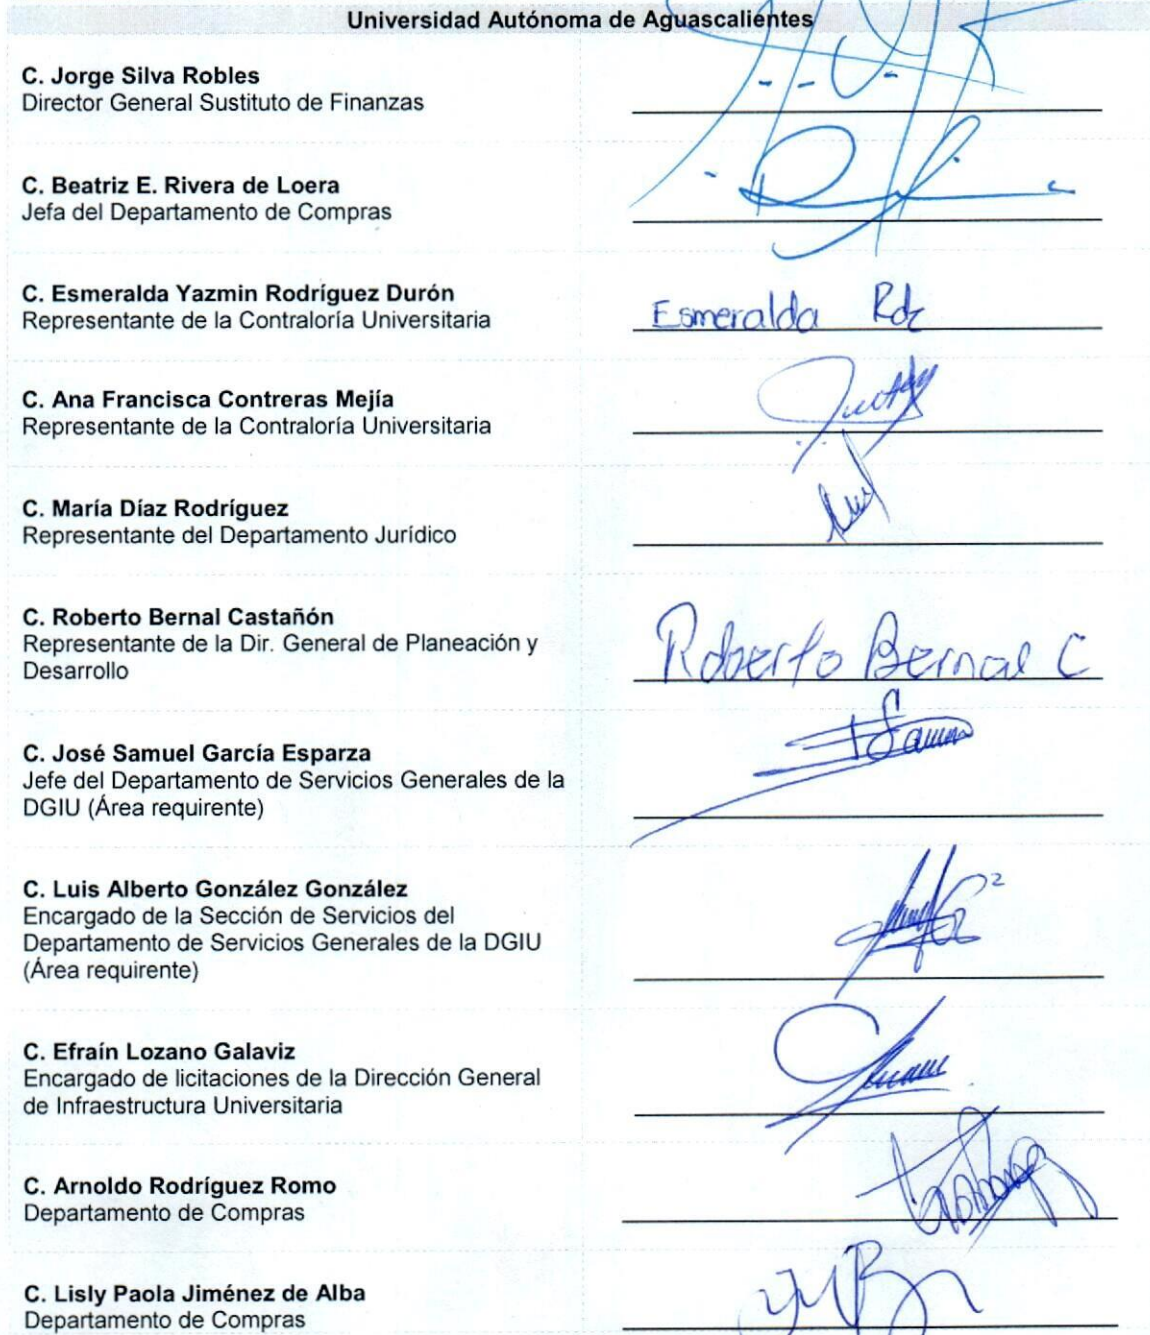 Universidad Autónoma de Aguascalientes
C. Jorge Silva Robles
Director General Sustituto de Finanzas
C. Beatriz E. Rivera de Loera
Jefa del Departamento de Compras
C. Esmeralda Yazmin Rodríguez Durón
Representante de la Contraloría Universitaria
Esmeralda Rdz
C. Ana Francisca Contreras Mejía
Representante de la Contraloría Universitaria
C. María Díaz Rodríguez
Representante del Departamento Jurídico
C. Roberto Bernal Castañón
Representante de la Dir. General de Planeación y
Desarrollo
Roberto Bernal C
C. José Samuel García Esparza
Jefe del Departamento de Servicios Generales de la
DGIU (Área requirente)
C. Luis Alberto González González
Encargado de la Sección de Servicios del
Departamento de Servicios Generales de la DGIU
(Área requirente)
C. Efraín Lozano Galaviz
Encargado de licitaciones de la Dirección General
de Infraestructura Universitaria
C. Arnoldo Rodríguez Romo
Departamento de Compras
C. Lisly Paola Jiménez de Alba
Departamento de Compras